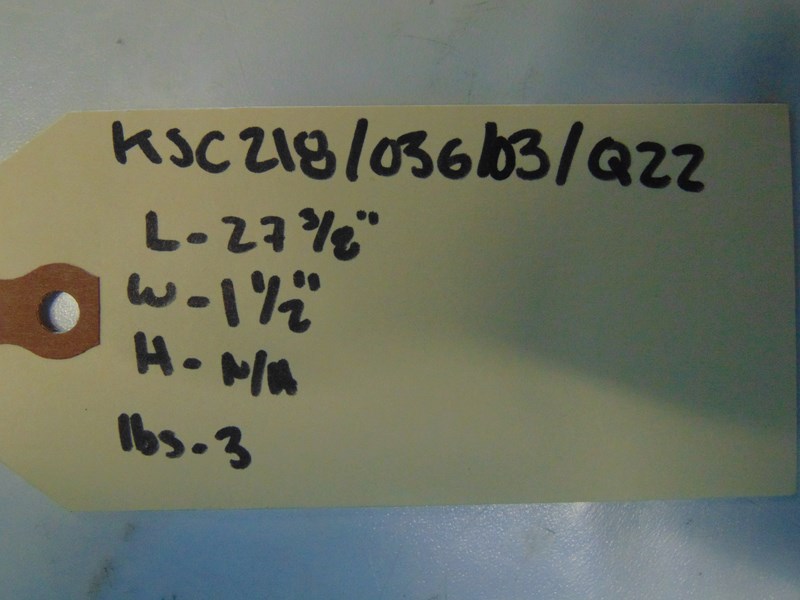 KSC218/036/03/Q22
L-27 3/8"
W-1 1/2"
H-N/A
lbs-3